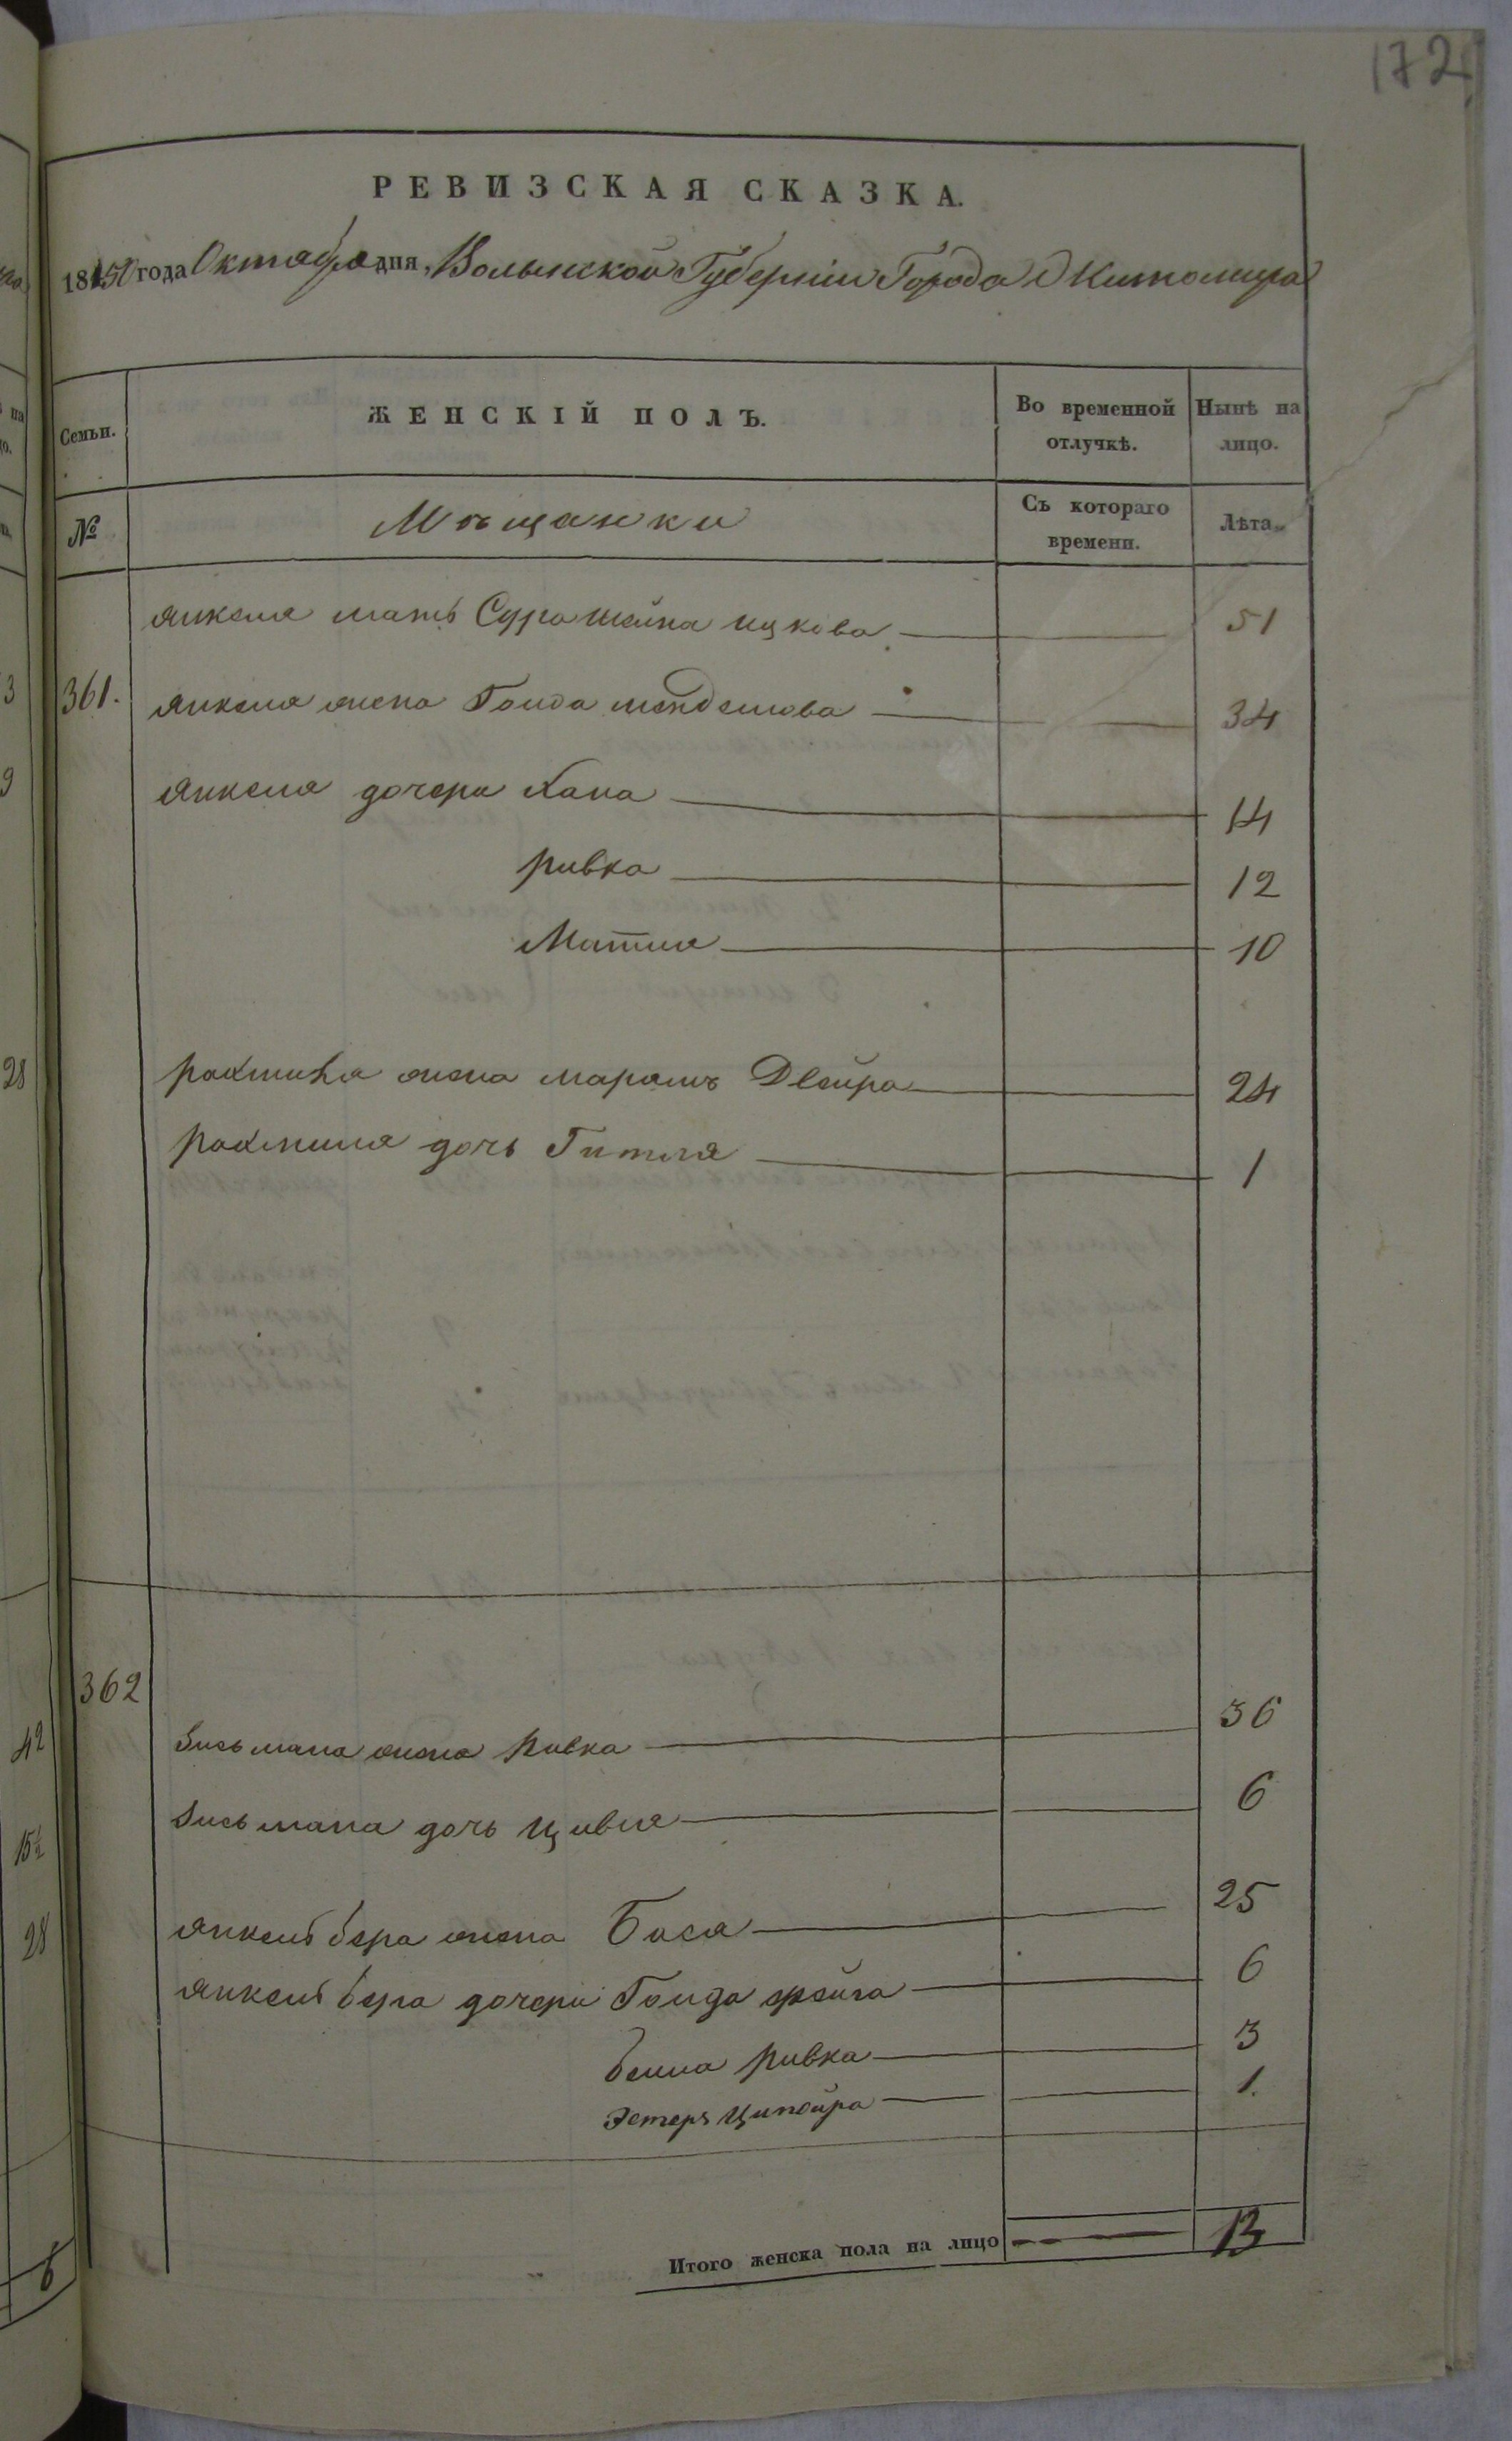 172
РЕВИЗСКАЯ СКАЗКА.
1850 года Октября дня, Волынской Губернии Города Житомира
Семьи. ЖЕНСКІЙ ПОЛЪ. Во временной отлучкѣ. Нынѣ на лицо.
№ Мѣщанки Съ котораго времени. Лѣта.
Янкеля мать Сура Шейна Ицкова 51
361. Янкеля жена Голда Менделиова 34
Янкеля дочери Хана 14
Ривка 12
Матля 10
Рахмиля жена Марямъ Двейра 24
Рахмиля дочь Гитля 1
362
Зисьмана жена Ривка 36
Зисьмана дочь Цивля 6
Янкель бера жена Бася 25
Янкель бера дочери Голда Фейга 6
бейла Ривка 3
Эстеръ Ципойра 1.
Итого женска пола на лицо 13
28
42
15½
28
6